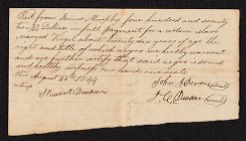 Recd from James Murphy four hundred and seventy
two 75 Dollars in full payment for a certain slave
named Virgin about twenty six years of age the
right and title of which negro we hereby warrant
and we further certify that said negro is sound
and healthy witness our hands and seals
this August 30th 1844
John J. Devane (seal)
test
Stewart Devane
J. C. Devane (seal)